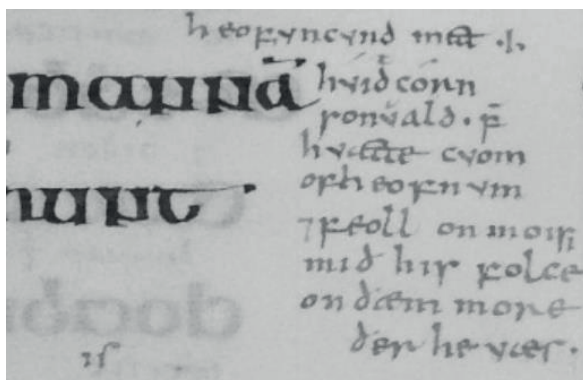 heofuncund mett · ł
manna huidcorn
sonuald · þ̄
huætte cuom
of heofnum
⁊ feoll on mois
mid his folce
on ðæm more
ðer he wæs ·
is